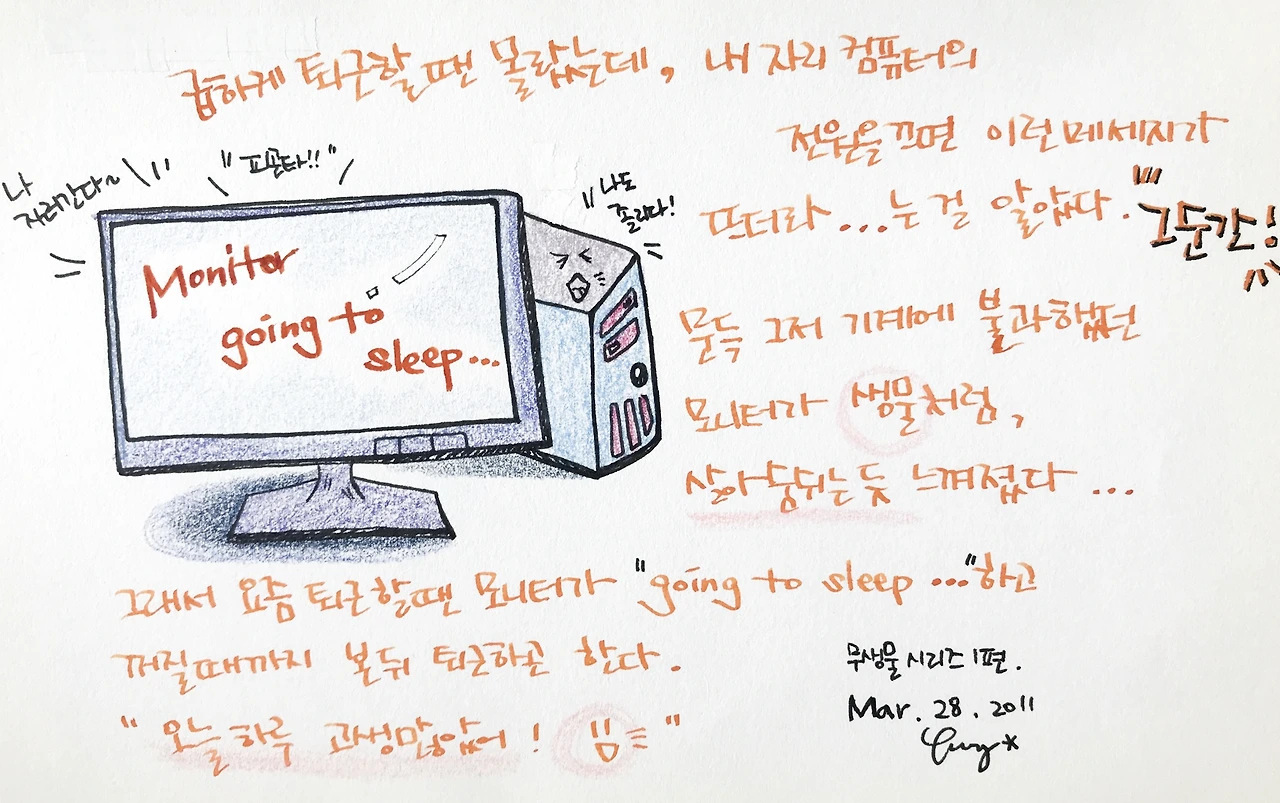 급하게 퇴근할땐 몰랐는데, 내 자리 컴퓨터의
전원을 끄면 이런 메세지가
뜨더라...는 걸 알았다.
그순간!
나
자러간다~
"피곤타!!"
"나도
졸리다!
Monitor
going to
sleep...
문득 그저 기계에 불과했던
모니터가 생물처럼,
살아숨쉬는듯 느껴졌다...
그래서 요즘 퇴근할땐 모니터가 "going to sleep..."하고
꺼질때까지 본뒤 퇴근하곤 한다.
"오늘 하루 고생많았어!"
무생물 시리즈 1편.
Mar. 28. 2011